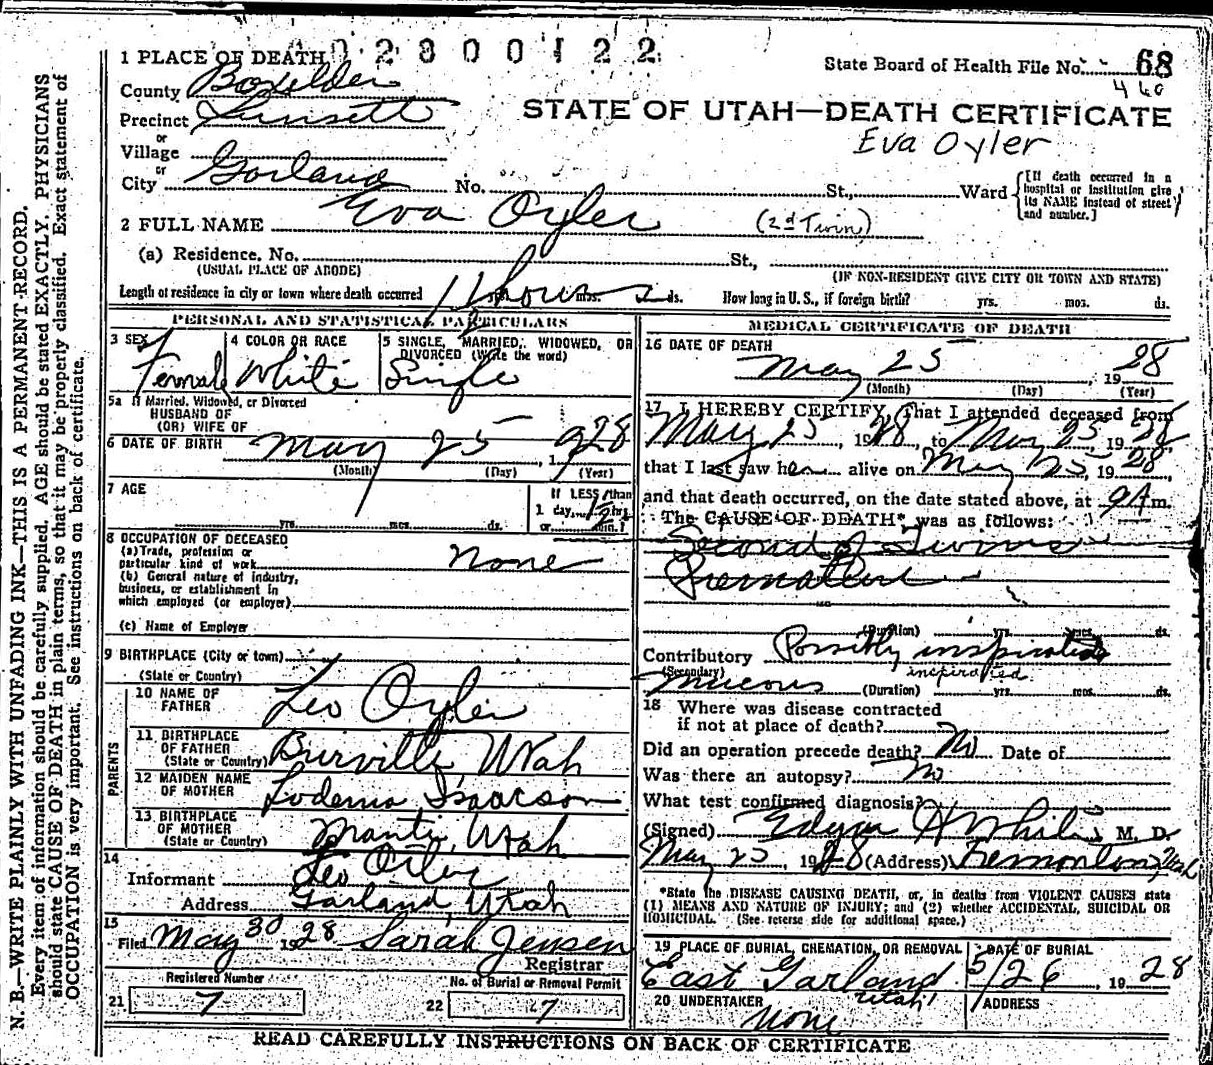 02800122
1 PLACE OF DEATH
State Board of Health File No. 68
460
County Boxelder
STATE OF UTAH—DEATH CERTIFICATE
Precinct Sunsett
Eva Oyler
or
Village
or
City Garland No. St., Ward
[If death occurred in a hospital or institution give its NAME instead of street and number.]
2 FULL NAME Eva Oyler (2d Twin)
(a) Residence. No. St.,
(USUAL PLACE OF ABODE) (IF NON-RESIDENT GIVE CITY OR TOWN AND STATE)
Length of residence in city or town where death occurred hours mos. ds. How long in U. S., if foreign birth? yrs. mos. ds.
PERSONAL AND STATISTICAL PARTICULARS
3 SEX Female
4 COLOR OR RACE White
5 SINGLE, MARRIED, WIDOWED, OR DIVORCED (Write the word) Single
5a If Married, Widowed, or Divorced
HUSBAND OF
(OR) WIFE OF
6 DATE OF BIRTH May 25, 1928
(Month) (Day) (Year)
7 AGE
yrs. mos. ds.
If LESS than
1 day, hrs.
or min.?
8 OCCUPATION OF DECEASED
(a) Trade, profession or
particular kind of work None
(b) General nature of industry,
business, or establishment in
which employed (or employer)
(c) Name of Employer
9 BIRTHPLACE (City or town)
(State or Country)
PARENTS
10 NAME OF FATHER Leo Oyler
11 BIRTHPLACE OF FATHER (State or Country) Burville, Utah
12 MAIDEN NAME OF MOTHER Lodema Isaacson
13 BIRTHPLACE OF MOTHER (State or Country) Manti, Utah
14
Informant Leo Oyler
Address Garland, Utah
15
Filed May 30 1928 Sarah Jensen
Registrar
Registered Number
21 7
No. of Burial or Removal Permit
22 7
MEDICAL CERTIFICATE OF DEATH
16 DATE OF DEATH
May 25, 1928
(Month) (Day) (Year)
17 I HEREBY CERTIFY, That I attended deceased from
May 25, 1928, to May 25 1928
that I last saw her alive on May 25, 1928,
and that death occurred, on the date stated above, at 9 A m.
The CAUSE OF DEATH* was as follows:
Second of Twins
Premature
(Duration) yrs. mos. ds.
Contributory Possibly inspirated
(Secondary) inspirated
mucous (Duration) yrs. mos. ds.
18 Where was disease contracted
if not at place of death?
Did an operation precede death? No Date of
Was there an autopsy? No
What test confirmed diagnosis?
(Signed) Edgar H White, M. D.
May 25, 1928 (Address) Tremonton, Utah
*State the DISEASE CAUSING DEATH, or, in deaths from VIOLENT CAUSES state
(1) MEANS AND NATURE OF INJURY; and (2) whether ACCIDENTAL, SUICIDAL OR
HOMICIDAL. (See reverse side for additional space.)
19 PLACE OF BURIAL, CREMATION, OR REMOVAL
East Garland
Utah
DATE OF BURIAL
5/26, 1928
20 UNDERTAKER
None
ADDRESS
READ CAREFULLY INSTRUCTIONS ON BACK OF CERTIFICATE
N. B.—WRITE PLAINLY WITH UNFADING INK—THIS IS A PERMANENT RECORD.
Every item of information should be carefully supplied. AGE should be stated EXACTLY. PHYSICIANS
should state CAUSE OF DEATH in plain terms, so that it may be properly classified. Exact statement of
OCCUPATION is very important. See instructions on back of certificate.